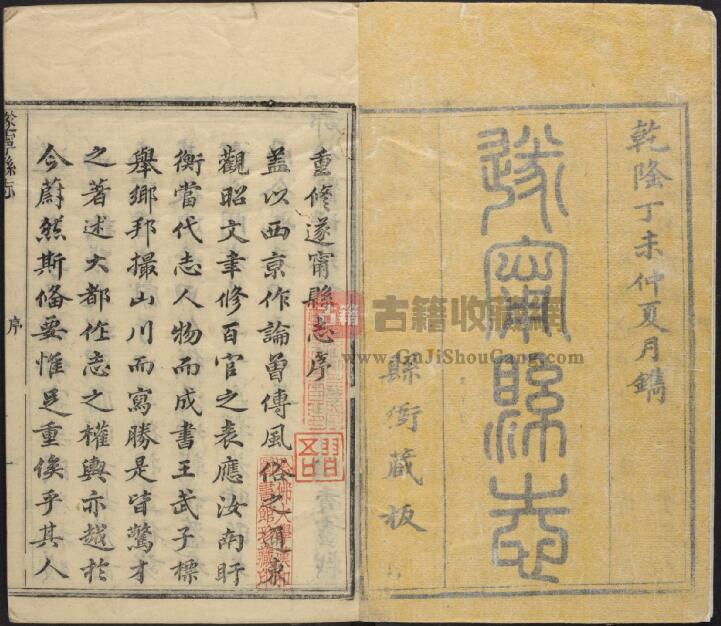 乾隆丁未仲夏月鐫
遂甯縣志
縣衙藏板
古籍
古籍收藏網
www.GuJiShouCang.com
重修遂甯縣志序
蓋以西京作論曾傳風俗之通東
觀昭文聿修百官之表應汝南盱
衡當代志人物而成書王武子標
舉鄉邦撮山川而寫勝是皆驚才
之著述大都作志之權輿亦越於
今蔚然斯備要惟足重俟乎其人
遂寧縣志
序
一